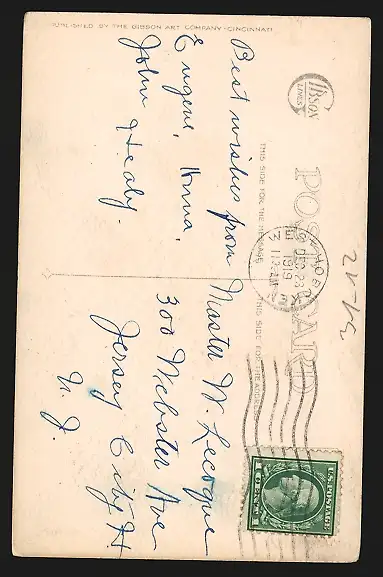 PUBLISHED BY THE GIBSON ART COMPANY-CINCINNATI
GIBSON
LINES
POST CARD
THIS SIDE FOR THE MESSAGE
THIS SIDE FOR THE ADDRESS
DEC 23
1919
Best wishes from
Eugene, Anna,
John Healy.
Master W. Lecoque
300 Webster Ave
Jersey City H.
N. J.
U.S. POSTAGE
1 CENT 1